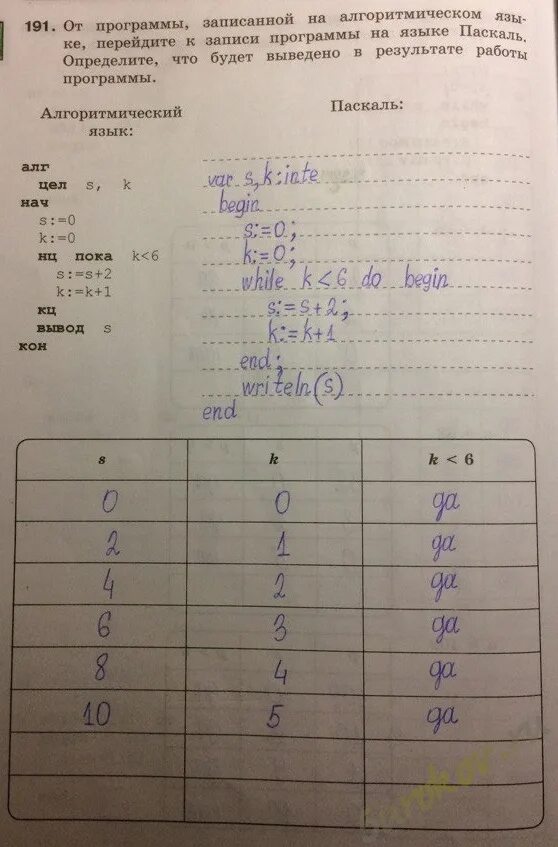 191. От программы, записанной на алгоритмическом язы-
ке, перейдите к записи программы на языке Паскаль.
Определите, что будет выведено в результате работы
программы.
Алгоритмический
язык:
алг
цел s, k
нач
s:=0
k:=0
нц пока k<6
s:=s+2
k:=k+1
кц
вывод s
кон
Паскаль:
var s,k:inte
begin
s:=0;
k:=0;
while k<6 do begin
s:=s+2;
k:=k+1
end;
writeln(s)
end
s k k < 6
0 0 да
2 1 да
4 2 да
6 3 да
8 4 да
10 5 да